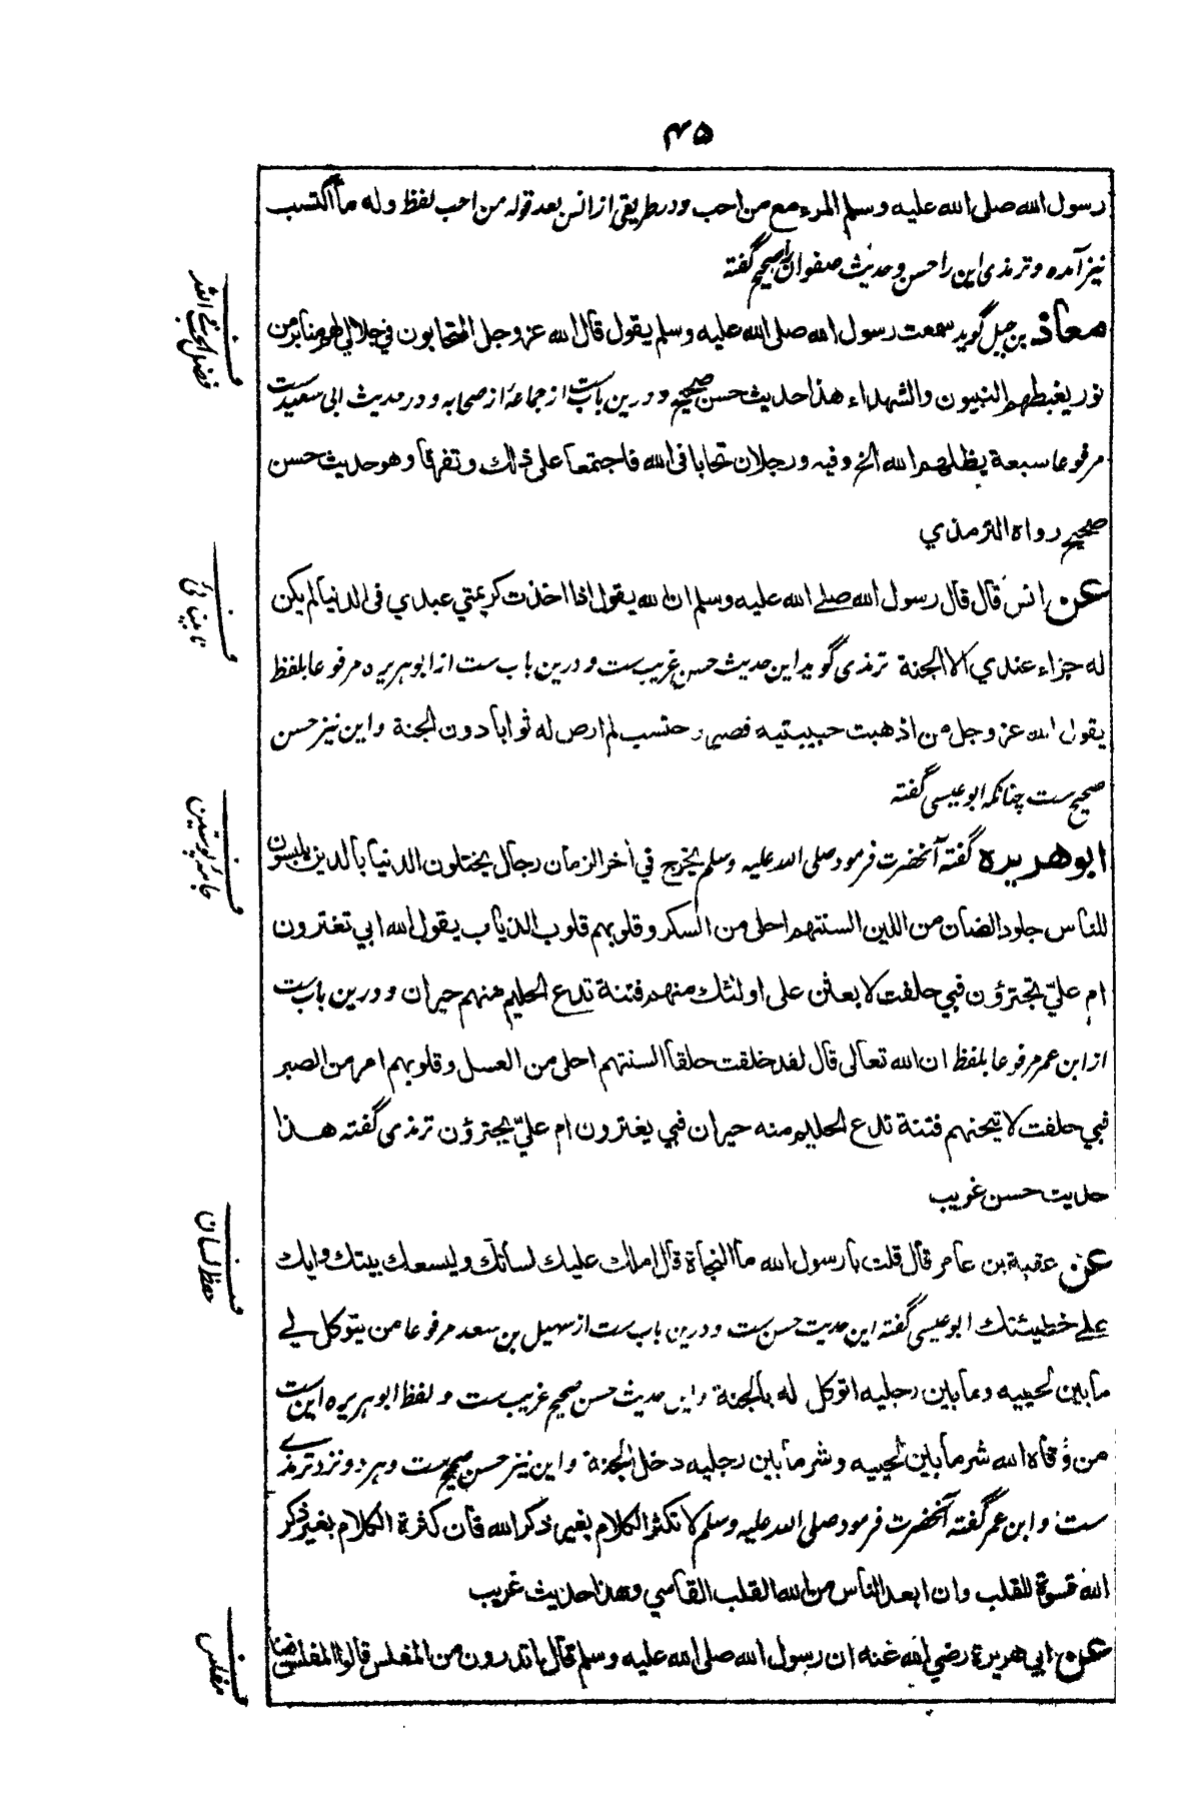 ۴۵
رسول الله صلى الله عليه وسلم المرء مع من احب ودر طریقی از انس بعد قوله من احب لفظ وله ما اکتسب
نیز آمده وترمذی این را حسن وحدیث صفوان را صحیح گفته
معاذ بن جبل گوید سمعت رسول الله صلى الله عليه وسلم يقول قال الله عز وجل المتحابون في جلالي لهم منابر من
نور يغبطهم النبيون والشهداء هذا حديث حسن صحيح ودرین باب ست از جماعۀ از صحابه ودر حدیث ابی سعید ست
مرفوعا سبعة يظلهم الله الخ وفيه ورجلان تحابا فى الله فاجتمعا على ذلك وتفرقا وهو حديث حسن
صحيح رواه الترمذي
عن انس قال قال رسول الله صلے الله عليه وسلم ان الله يقول اذا اخذت كريمتي عبدي فى الدنيا لم يكن
له جزاء عندي الا الجنة ترمذی گوید این حدیث حسن غریب ست ودرین باب ست از ابو هریره مرفوعا بلفظ
يقول الله عز وجل من اذهبت حبيبتيه فصبر واحتسب لم ارض له ثوابا دون الجنة واین نیز حسن
صحیح ست چنانکه ابو عیسی گفته
ابو هریره گفته آنحضرت فرمود صلى الله عليه وسلم يخرج في اخر الزمان رجال يختلون الدنيا بالدين يلبسون
للناس جلود الضان من اللين السنتهم احلى من السكر وقلوبهم قلوب الذياب يقول الله ابي تغترون
ام عليّ تجترؤن فبي حلفت لابعثن على اولئك منهم فتنة تدع الحليم منهم حيران ودرین باب ست
از ابن عمر مرفوعا بلفظ ان الله تعالى قال لقد خلقت خلقا السنتهم احلى من العسل وقلوبهم امر من الصبر
فبي حلفت لاتيحنهم فتنة تدع الحليم منه حيران فبي يغترون ام عليّ يجترؤن ترمذی گفته هذا
حديث حسن غريب
عن عقبة بن عامر قال قلت يا رسول الله ما النجاة قال املك عليك لسانك وليسعك بيتك وابك
علے خطيئتك ابو عیسی گفته این حدیث حسن ست ودرین باب ست از سهیل بن سعد مرفوعا من يتوكل لي
ما بين لحييه وما بين رجليه اتوكل له بالجنة واین حدیث حسن صحیح غریب ست ولفظ ابو هریره این ست
من وقاه الله شر ما بين لحييه وشر ما بين رجليه دخل الجنة واین نیز حسن صحیح ست وهر دو نزد ترمذی
ست وابن عمر گفته آنحضرت فرمود صلى الله عليه وسلم لا تكثر الكلام بغير ذكر الله فان كثرة الكلام بغير ذكر
الله قسوة للقلب وان ابعد الناس من الله القلب القاسي وهذا حديث غريب
عن ابي هريرة رضي الله عنه ان رسول الله صلى الله عليه وسلم قال اتدرون من المفلس قالوا المفلس فينا
ف
فضل الحب في الله
ف
نابینائی
ف
جامۀ پوستین
ف
حفظ لسان
ف
مفلس